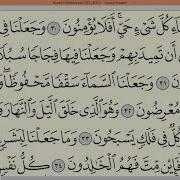 مَآءِ كُلَّ شَىْءٍ حَىٍّ أَفَلَا يُؤْمِنُونَ ٣٠ وَجَعَلْنَا فِى
أَن تَمِيدَ بِهِمْ وَجَعَلْنَا فِيهَا فِجَاجًا سُبُلًا
٣١ وَجَعَلْنَا ٱلسَّمَآءَ سَقْفًا مَّحْفُوظًا
مُعْرِضُونَ ٣٢ وَهُوَ ٱلَّذِى خَلَقَ ٱلَّيْلَ وَٱلنَّهَارَ
كُلٌّ فِى فَلَكٍ يَسْبَحُونَ ٣٣ وَمَا جَعَلْنَا لِبَشَرٍ
أَفَإِي۟ن مِّتَّ فَهُمُ ٱلْخَٰلِدُونَ ٣٤ كُلُّ نَفْسٍ